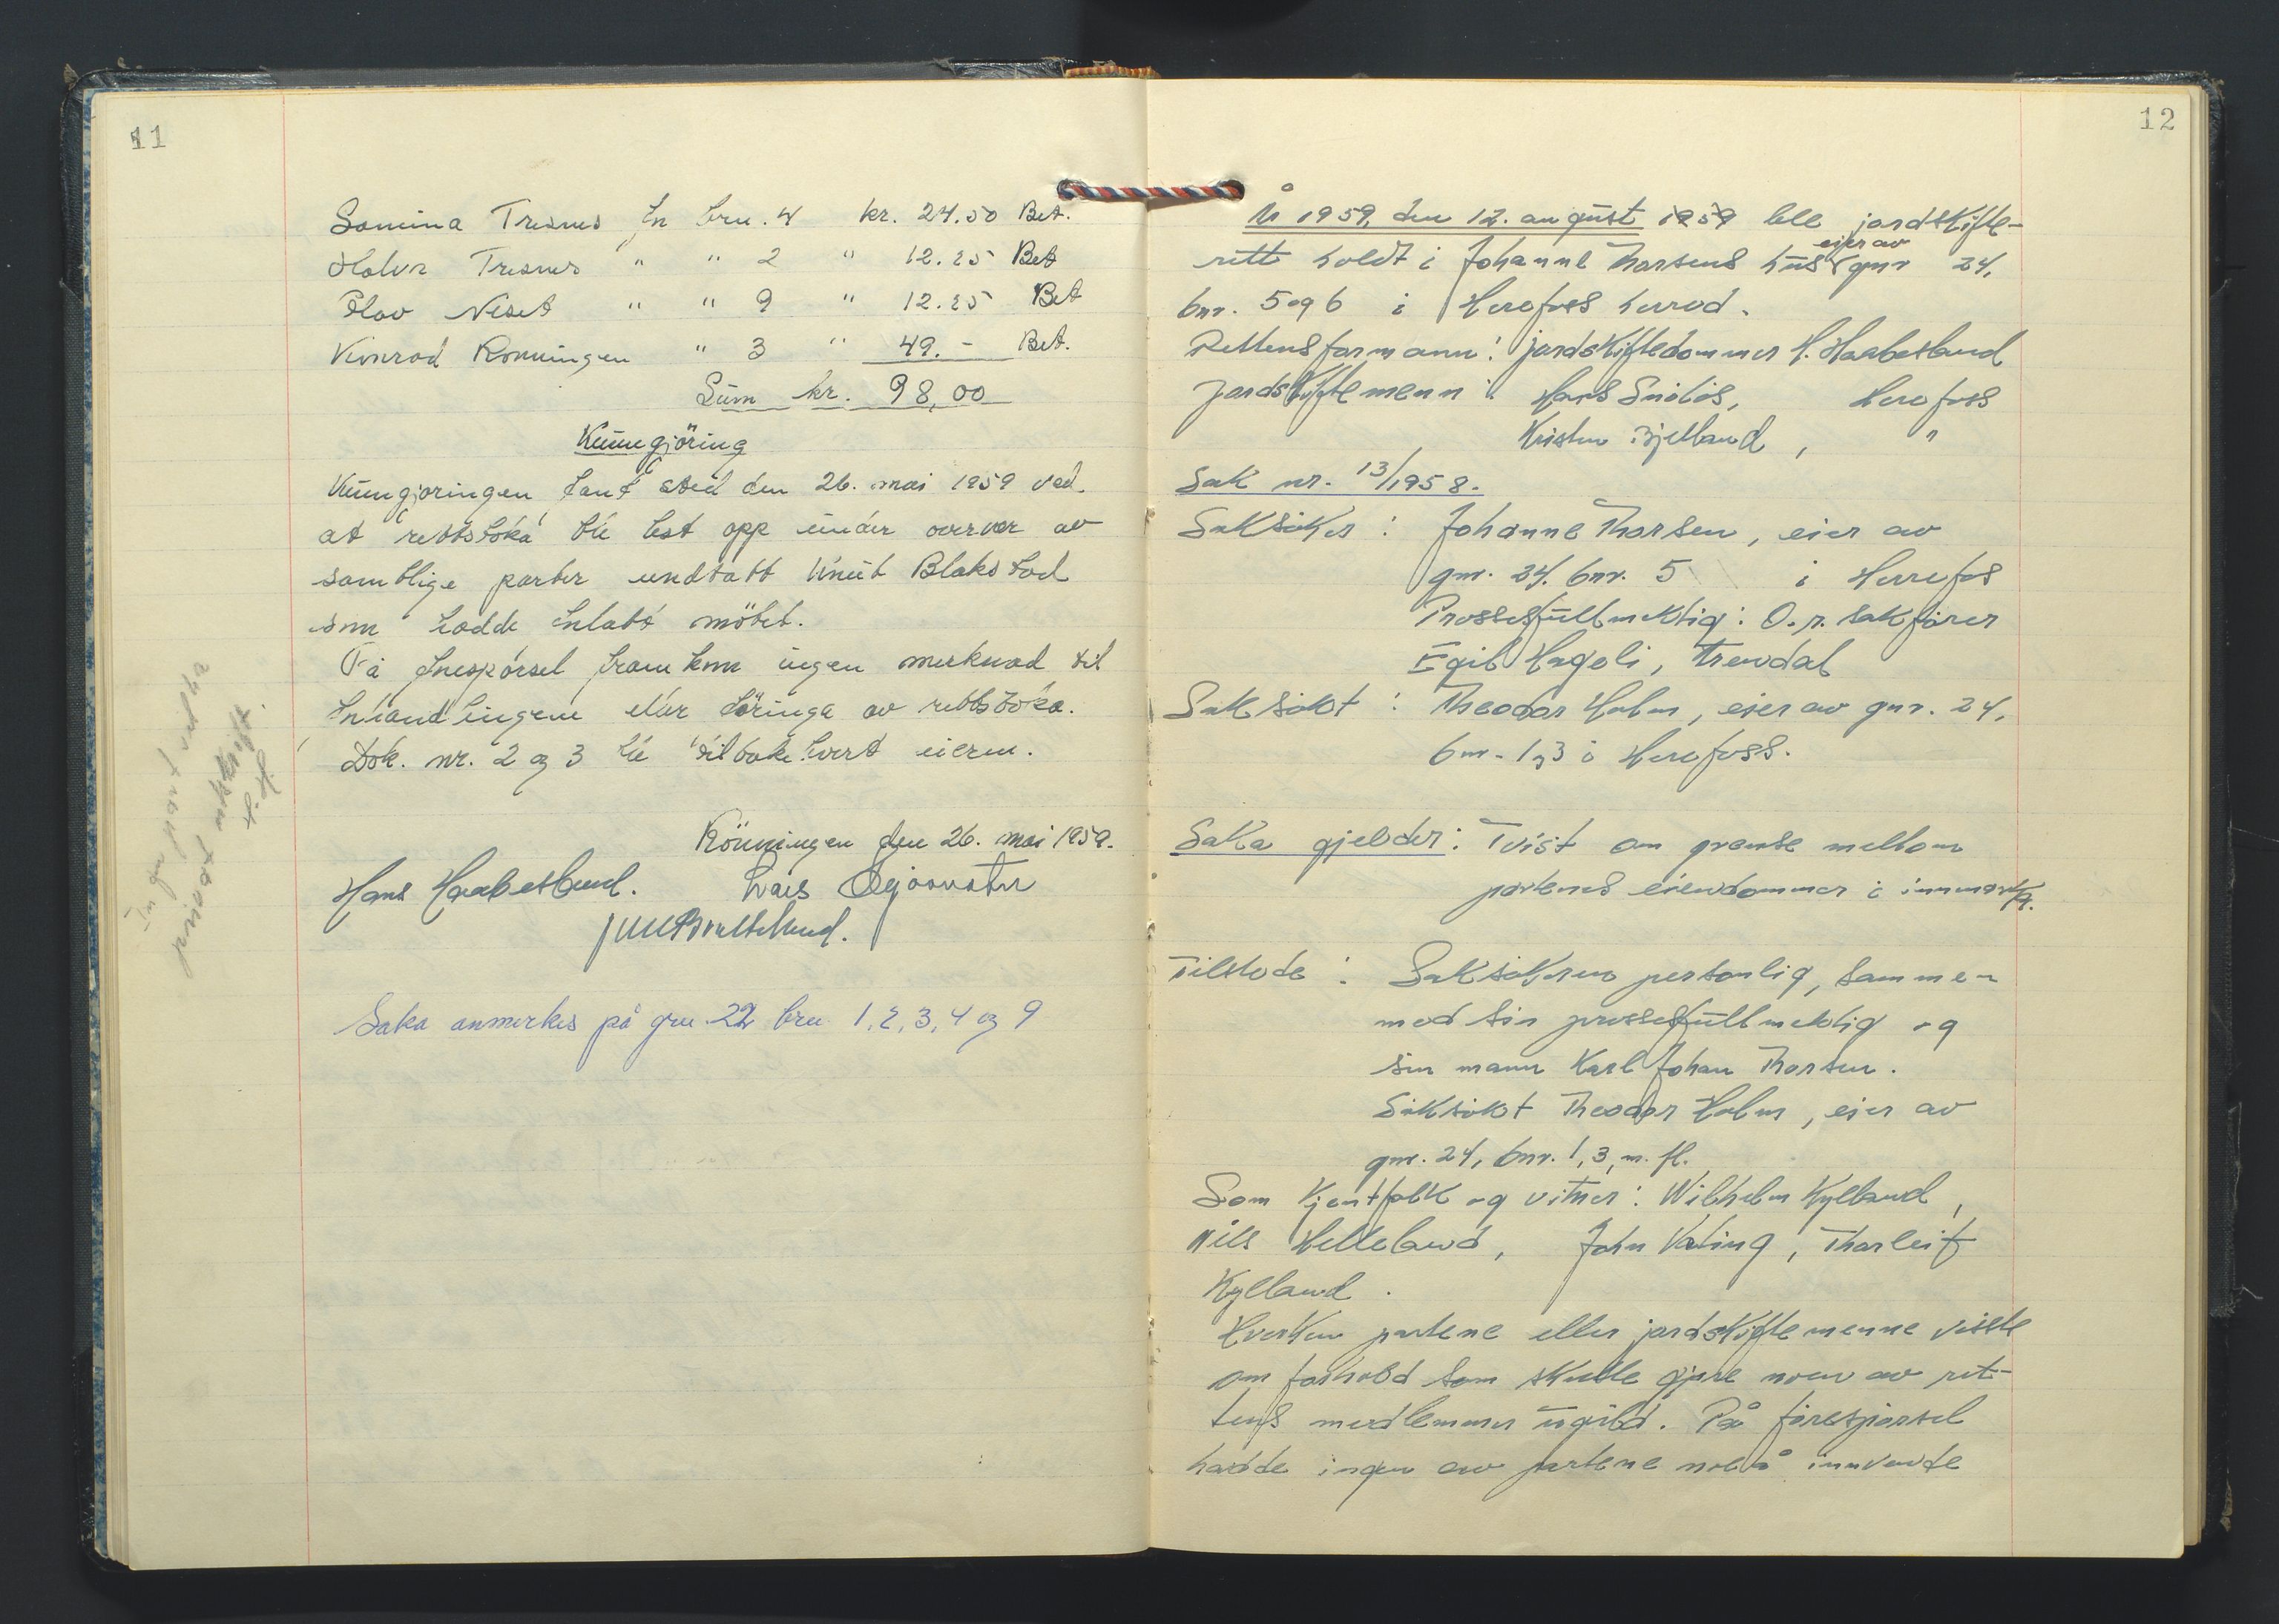 11
Somina Tresnes for bru. 4 kr. 24.50 Bet.
Halvor Tresnes " " 2 " 12.25 Bet
Olav Neset " " 9 " 12.25 Bet
Konrad Rønningen " 3 " 49.- Bet.
Sum kr. 98,00
Kunngjöring
Kunngjøringen fant sted den 26. mai 1959 ved
at rettsboka ble lest opp under overvær av
samtlige parter undtatt Knut Blakstad
som hadde forlatt møtet.
På forespørsel framkom ingen merknad til
forhandlingene eller føringa av rettsboka.
Dok. nr. 2 og 3 ble tilbakelevert eieren.
Rönningen den 26. mai 1959.
Hans Haabesland. Lars
Saka anmerkes på gnr 22 bnr 1, 2, 3, 4 og 9
12
År 1959, den 12. august 1959 ble jordskifte-
rett holdt i Johanne Thorsens hus eier av gnr 24,
bnr. 5 og 6 i Herefoss herred.
Rettens formann: jordskiftedommer H. Haabesland
Jordskiftemenn: Hans Snøløs, Herefoss
Kristen Bjelland, "
Sak nr. 13/1958.
Saksøker: Johanne Thorsen, eier av
gnr. 24, bnr. 5 i Herrefos
Prossesfullmektig: O.r. sakfører
Egil Hageli, Arendal
Saksøkt: Theodor Holm, eier av gnr. 24,
bnr. 1, 3 i Herefoss.
Saka gjelder: Tvist om grense mellom
partenes eiendommer i innmark.
Tilstede: Saksøkeren personlig, sammen
med sin prossesfullmektig og
sin mann Karl Johan Thorsen.
Saksøkt Theodor Holm, eier av
gnr. 24, bnr. 1, 3, m. fl.
Som kjentfolk og vitner: Wilhelm Kylland,
Nils Helleland, John Væting, Thorleif
Kylland.
Hverken partene eller jordskiftemenne visste
om forhold som skulle gjøre noen av ret-
tens medlemmer ugild. På forespørsel
hadde ingen av partene noe å innvende